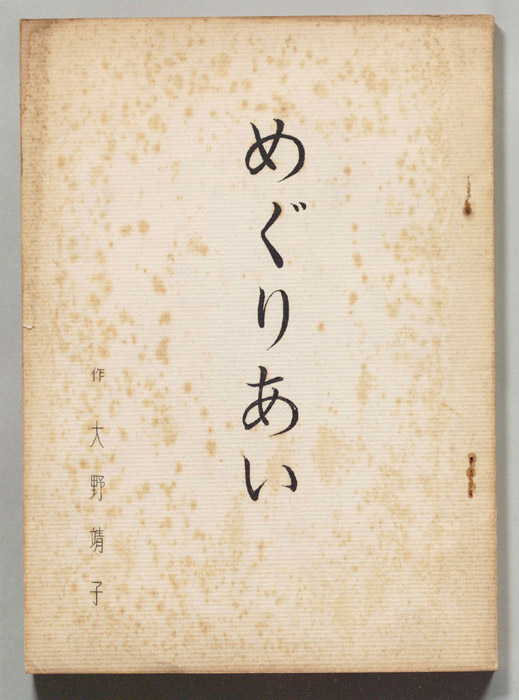 めぐりあい
作 大野靖子